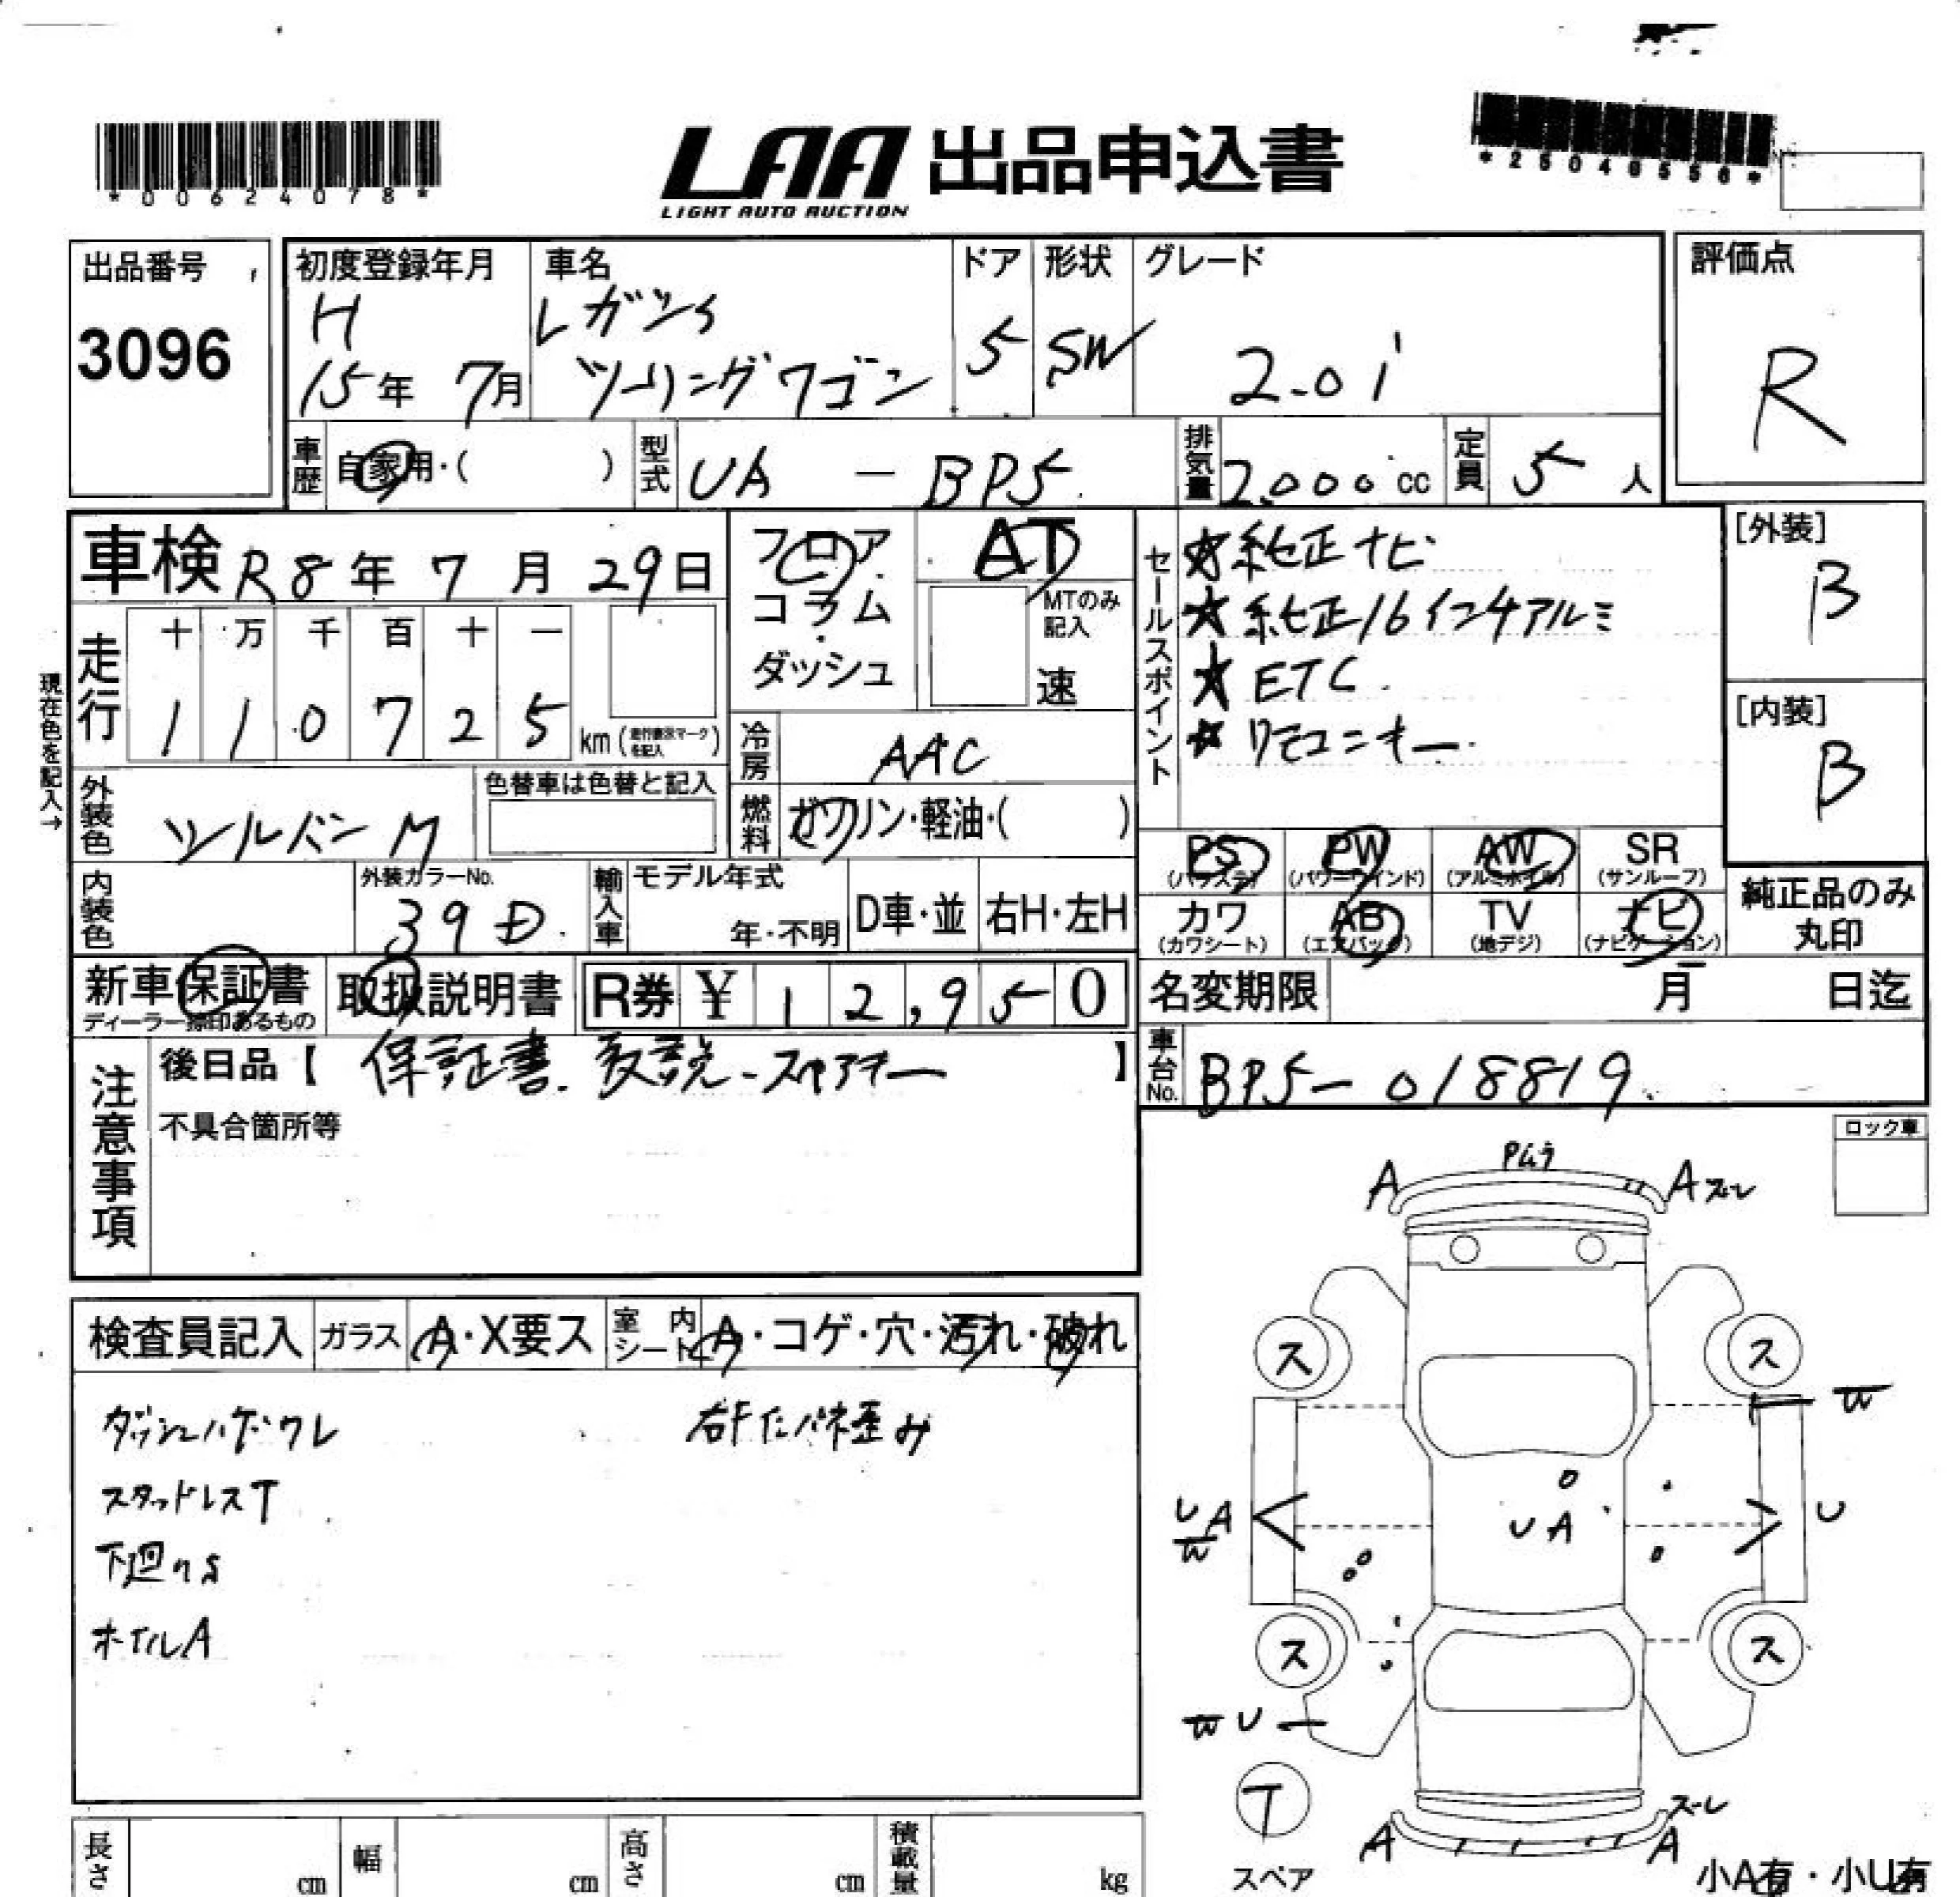 *00624078*
LAA 出品申込書
LIGHT AUTO AUCTION
*25048556*
出品番号
3096
初度登録年月
H
15年 7月
車名
レガシィ
ツーリングワゴン
ドア
5
形状
SW
グレード
2.0i
評価点
R
車歴
自家用・( )
型式
UA - BP5
排気量
2,000 cc
定員
5 人
車検 R8年 7月 29日
走行
十 万 千 百 十 一
1 1 0 7 2 5 km (走行表示マークを記入)
現在色を記入→
外装色
シルバーM
色替車は色替と記入
内装色
外装カラーNo.
39D
フロア
コラム
・
ダッシュ
AT
MTのみ
記入
速
冷房
AAC
燃料
ガソリン・軽油・( )
輸入車
モデル年式
年・不明
D車・並
右H・左H
セールスポイント
☆純正ナビ
★純正16インチアルミ
★ETC
☆リモコンキー
[外装]
B
[内装]
B
PS
(パワステ)
PW
(パワーウインド)
AW
(アルミホイル)
SR
(サンルーフ)
カワ
(カワシート)
AB
(エアバッグ)
TV
(地デジ)
ナビ
(ナビゲーション)
純正品のみ
丸印
新車保証書
ディーラー捺印あるもの
取扱説明書
R券 ¥ 12,950
名変期限 月 日迄
車台No.
BP5-018819
注意事項
後日品【 保証書.取説-スペアキー 】
不具合箇所等
ロック車
検査員記入
ガラス
A・X要ス
室内
シート
A・コゲ・穴・汚れ・破れ
スタッドレスT
下廻りS
ホイルA
右Fインパネ歪み
Pムラ
A
A ズレ
ス
ス
W
UA
W
UA
U
ス
ス
W U
T
スペア
ズレ
A
A
小A有・小U有
長さ
cm
幅
cm
高さ
cm
積載量
kg